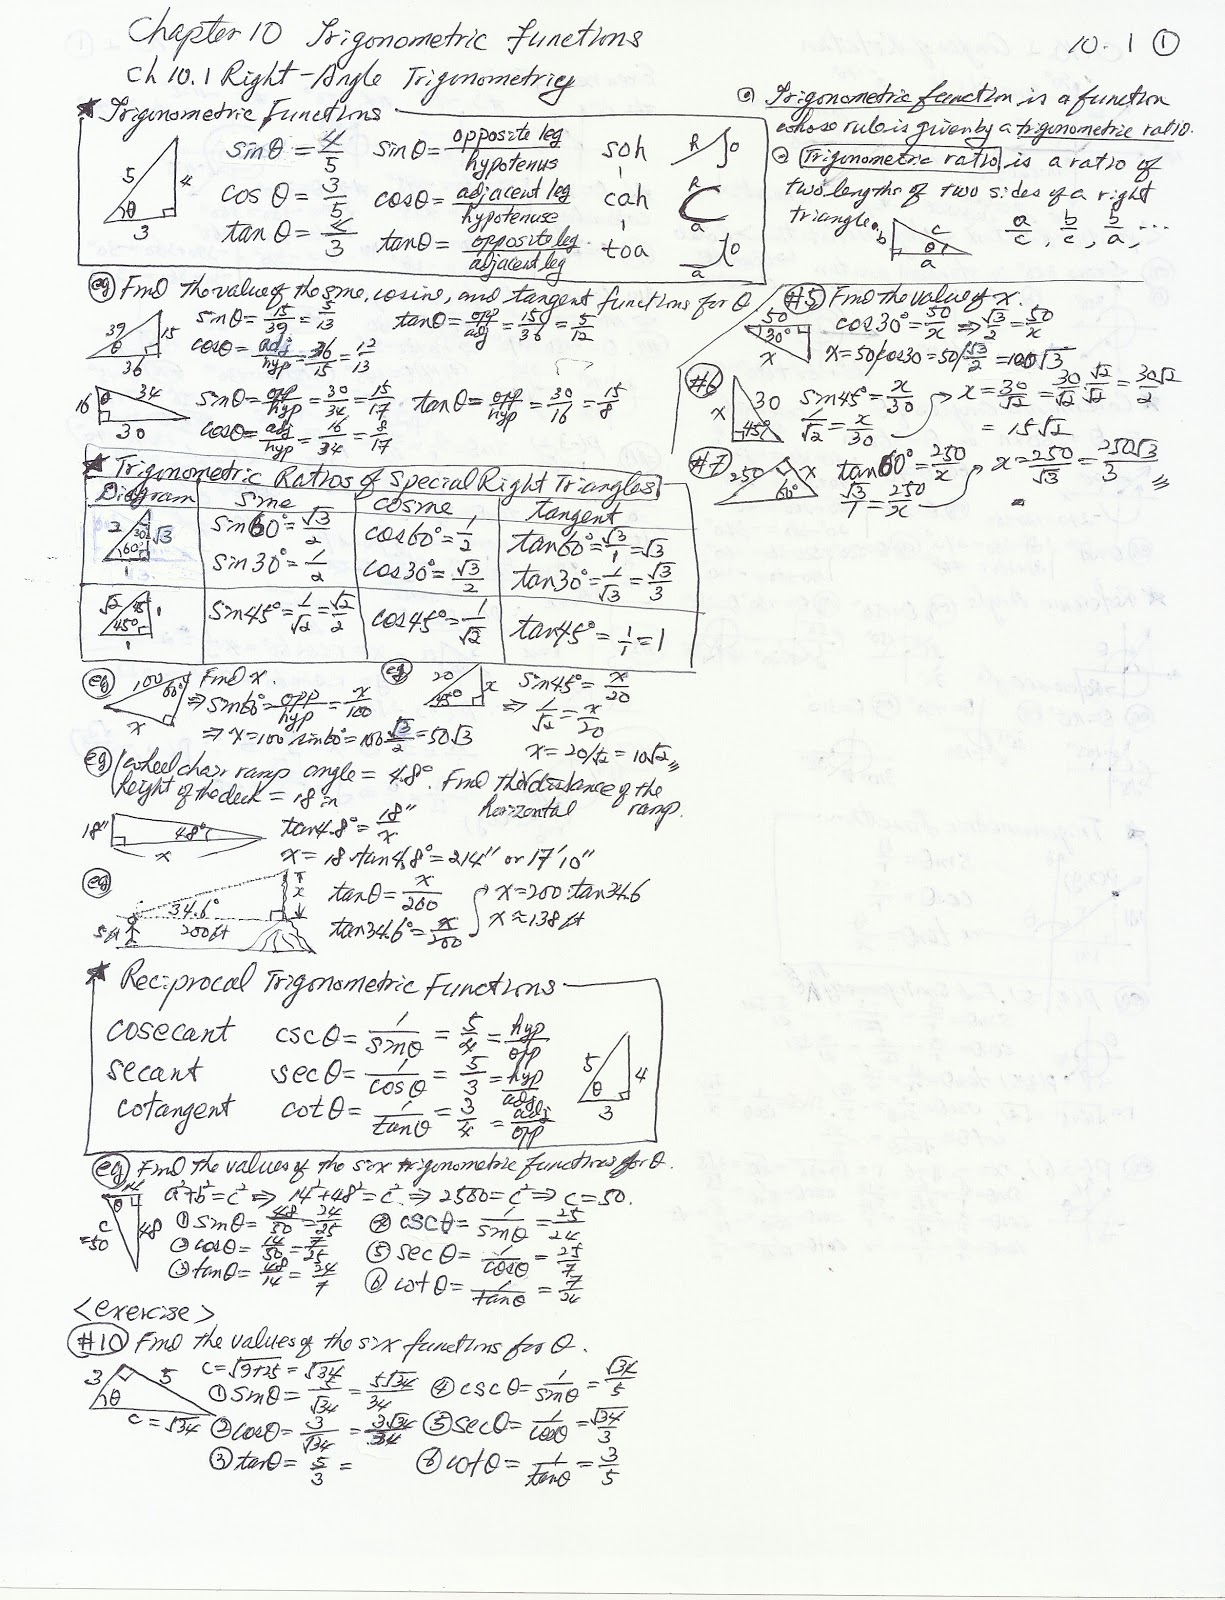 Chapter 10 Trigonometric Functions
10.1 ①
Ch 10.1 Right-Angle Trigonometriy
★ Trigonometric Functions
5 4 θ 3
sinθ = 4/5 sinθ = opposite leg/hypotenus soh h o
cos θ = 3/5 cosθ = adjacent leg/hypotenuse cah h a
tan θ = 4/3 tanθ = opposite leg/adjacent leg toa o a
Trigonometric function is a function
whose rule is given by a trigonometric ratio.
Trigonometric ratio is a ratio of
two lengths of two sides of a right
triangle. a/c, b/c, b/a, ...
b c θ a
eg Find the value of the sine, cosine, and tangent functions for θ
39 15 θ 36
sinθ = 15/39 = 5/13 tanθ = opp/adj = 15/36 = 5/12
cosθ = adj/hyp = 36/15 = 12/13
16 θ 34 30
sinθ = opp/hyp = 30/34 = 15/17 tanθ = opp/hyp = 30/16 = 15/8
cosθ = adj/hyp = 16/34 = 8/17
#5 Find the value of x.
50 30° x
cos30° = 50/x ⇒ √3/2 = 50/x
x = 50/cos30 = 50/√3/2 = 100√3
#6 x 30 45°
sin45° = x/30 x = 30/√2 = 30/√2 · √2/√2 = 30√2/2
1/√2 = x/30 = 15√2
#7 250 x 60°
tan60° = 250/x x = 250/√3 = 250√3/3
√3/1 = 250/x
★ Trigonometric Ratios of Special Right Triangles
Diagram sine cosine tangent
2 30° √3 60° 1
sin60° = √3/2 cos60° = 1/2 tan60° = √3/1 = √3
sin30° = 1/2 cos30° = √3/2 tan30° = 1/√3 = √3/3
√2 45 1 45° 1
sin45° = 1/√2 = √2/2 cos45° = 1/√2 tan45° = 1/1 = 1
eg 100 60° x Find x.
⇒ sin60° = opp/hyp = x/100
⇒ x = 100 sin60° = 100 √3/2 = 50√3
eg 20 x 45° sin45° = x/20
⇒ 1/√2 = x/20
x = 20/√2 = 10√2
eg wheelchair ramp angle = 4.8°. Find the distance of the
height of the deck = 18 in horizontal ramp.
18" 4.8° x
tan4.8° = 18"/x
x = 18·tan4.8° = 214" or 17'10"
eg 34.6° 200ft 5ft x
tanθ = x/200 x = 200·tan34.6
tan34.6° = x/200 x ≈ 138 ft
★ Reciprocal Trigonometric Functions
cosecant csc θ = 1/sinθ = 5/4 = hyp/opp
secant sec θ = 1/cosθ = 5/3 = hyp/adj
cotangent cot θ = 1/tanθ = 3/4 = adj/opp
5 4 θ 3
eg Find the values of the six trigonometric functions for θ.
14 θ c =50 48
a²+b² = c² ⇒ 14²+48² = c² ⇒ 2500 = c² ⇒ c = 50.
① sinθ = 48/50 = 24/25 ④ cscθ = 1/sinθ = 25/24
② cosθ = 14/50 = 7/25 ⑤ sec θ = 1/cosθ = 25/7
③ tanθ = 48/14 = 24/7 ⑥ cot θ = 1/tanθ = 7/24
<exercise>
#10 Find the values of the six functions for θ.
3 5 θ c = √34
c = √9+25 = √34
① sinθ = 5/√34 = 5√34/34 ④ cscθ = 1/sinθ = √34/5
② cosθ = 3/√34 = 3√34/34 ⑤ secθ = 1/cosθ = √34/3
③ tanθ = 5/3 = ⑥ cotθ = 1/tanθ = 3/5